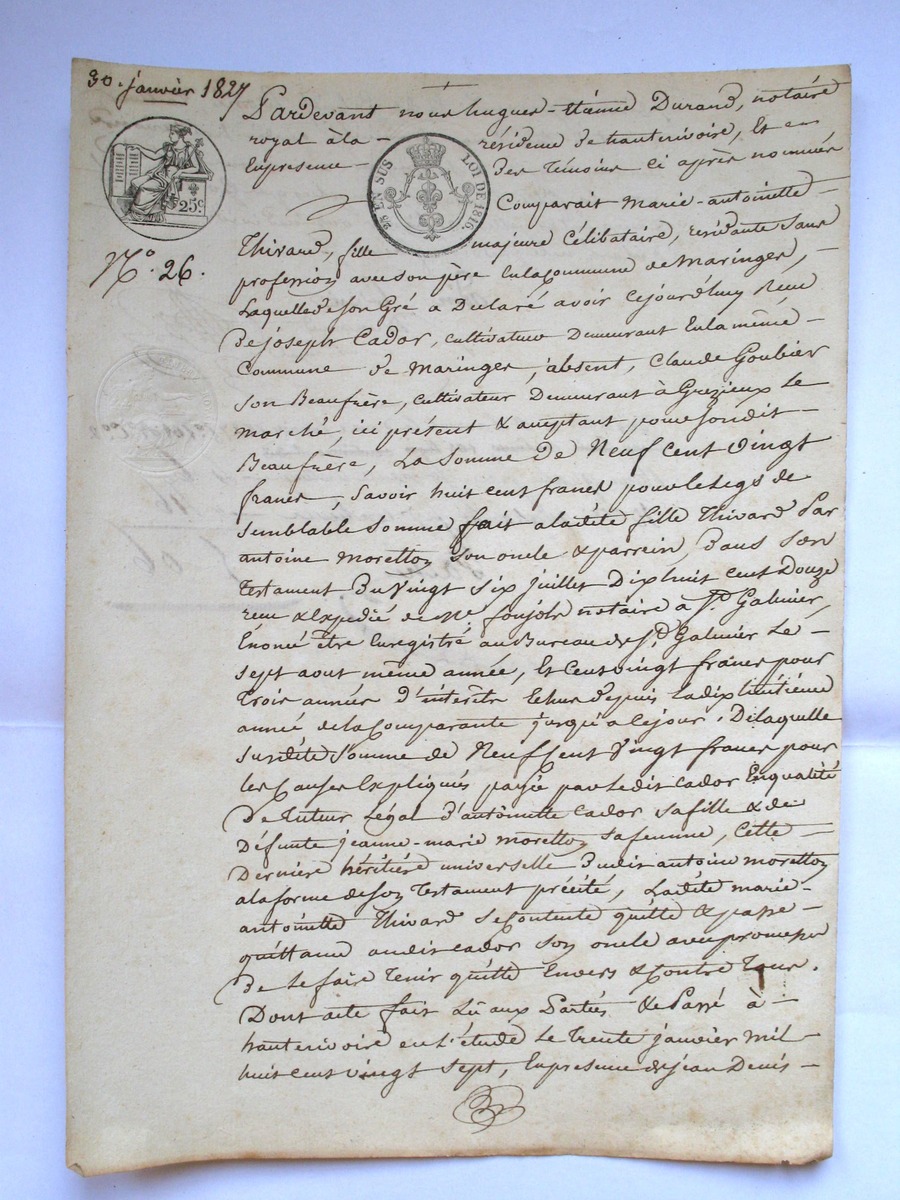 30. janvier 1827
Pardevant nous hugues-Étienne Durand, notaire
royal à la résidence de hauterivoire, Et en
25c.
2/5 EN SUS LOI DE 1816.
Enpresence des Témoins ci après nommés
Comparait Marie-antoinette
N.° 26.
Thivard, fille majeure Célibataire, résidante sans
profession avec son père En la Commune de Maringes,
Laquelle de son Gré a Déclaré avoir cejourd'huy Reçu
de joseph Cador, cultivateur Demeurant En la même
Commune de Maringes, absent, Claude Goubier
son Beaufrère, cultivateur Demeurant à Grézieux Le
marché, ici présent & acceptant pour sondit
Beaufrère, La Somme De Neuf cent vingt
francs, savoir huit cent francs pour le legs de
semblable somme fait a ladite fille Thivard Par
antoine moretton son oncle & parrein, Dans son
Testament Du Vingt six juillet Dix huit cent Douze
recu & Expedié de M.e notaire à S.t Galmier,
Enoncé Être Enregistré au Bureau de S.t Galmier Le
sept aout même année, Et Cent vingt francs pour
Trois années D'intérêts Echus depuis la dix huitième
année de la Comparante jusqu'à ce jour. De laquelle
susdite Somme de Neuf Cent Vingt francs pour
les Causes Expliquées payée par ledit cador En qualité
De Tuteur Légal D'antoinette cador sa fille & de
Défunte jeanne-marie moretton sa femme, Cette
Dernière héritière universelle Dudit antoine moretton
a la forme de son Testament précité, Ladite marie-
antoinette Thivard se Contente quitte & passe
quittance audit cador son oncle avec promesse
De le faire Tenir quitte Envers & Contre Tous.
Dont acte fait Lû aux Parties & Passé à
hauterivoire en L'étude Le Trente janvier mil
huit cent vingt sept, En presence de jean Denis